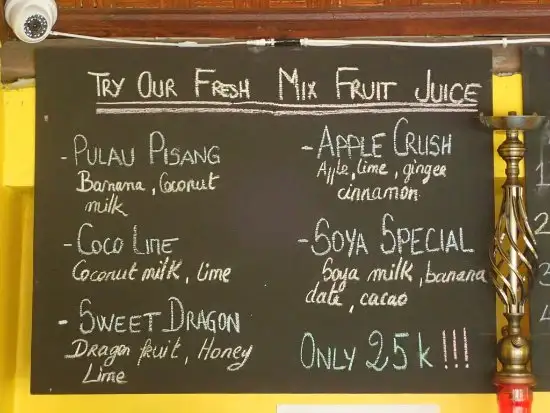 TRY OUR FRESH MIX FRUIT JUICE
- PULAU PISANG
Banana, Coconut
milk
- COCO LIME
Coconut milk, lime
- SWEET DRAGON
Dragon fruit, Honey
Lime
- APPLE CRUSH
Apple, lime, ginger
cinnamon
- SOYA SPECIAL
Soya milk, banana
date, cacao
ONLY 25k!!!
1
2
3
4